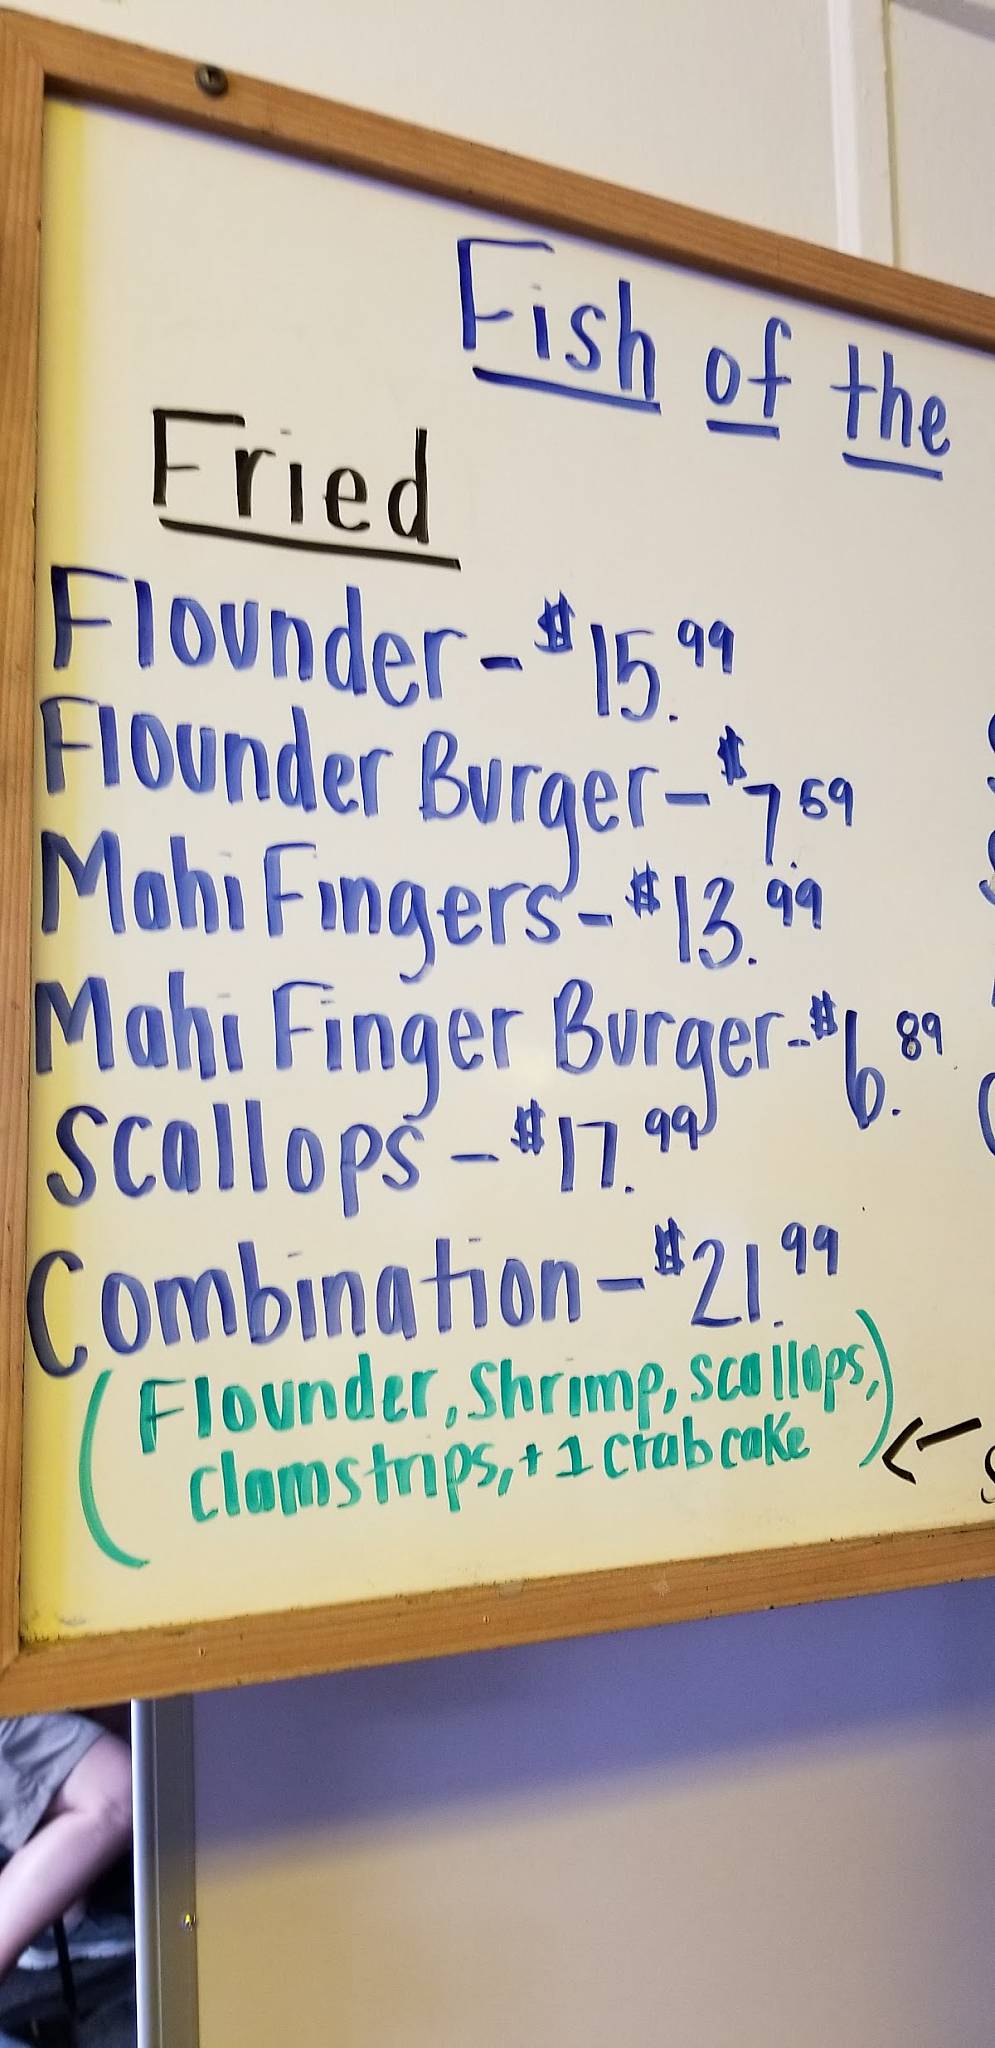 Fish of the
Fried
Flounder - $15.99
Flounder Burger - $7.59
Mahi Fingers - $13.99
Mahi Finger Burger - $6.89
Scallops - $17.99
Combination - $21.99
(Flounder, Shrimp, scallops,
clamstrips, + 1 crab cake) ←